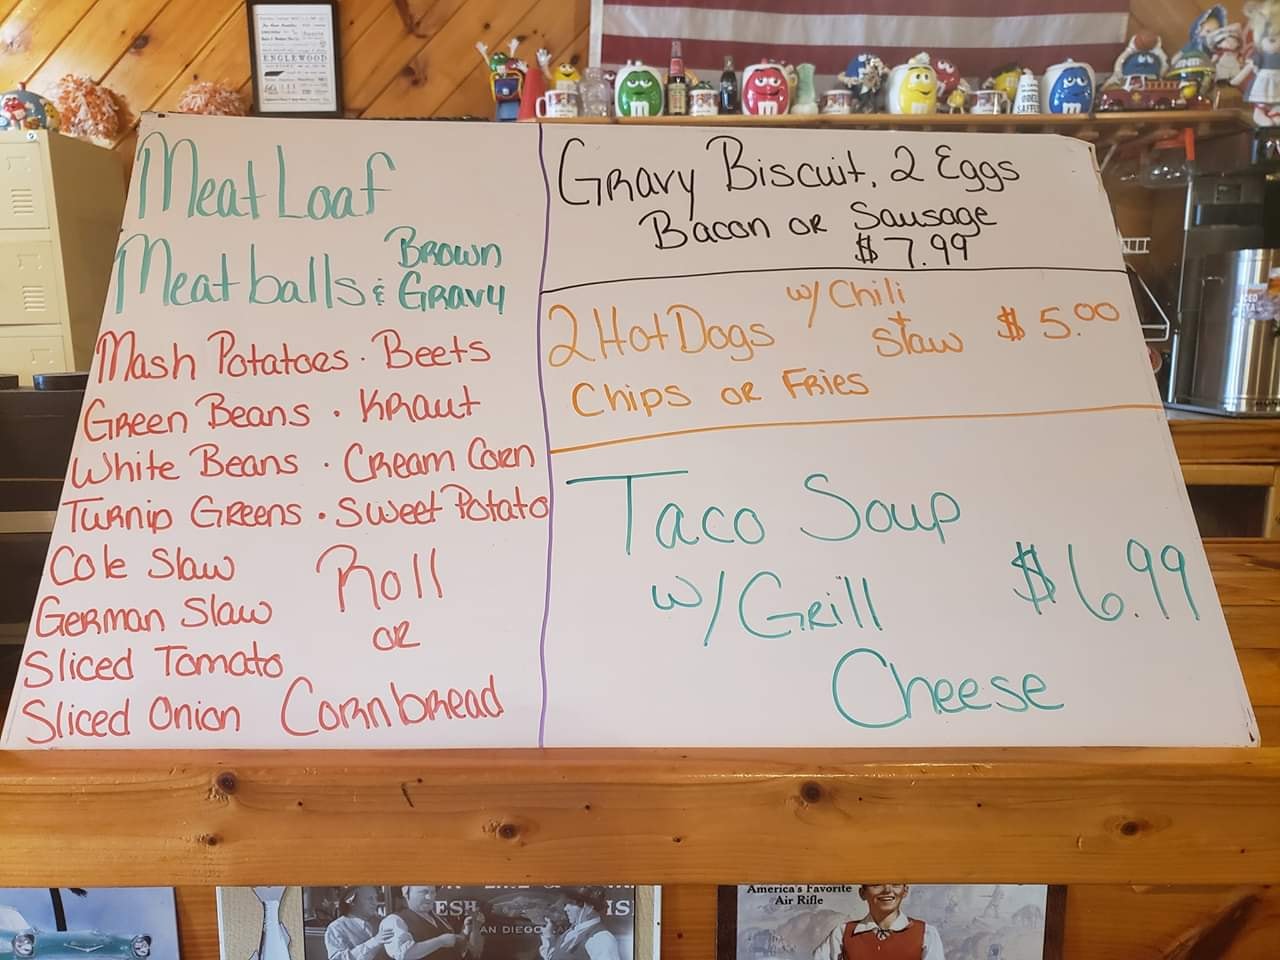 ENGLEWOOD
Meat Loaf
Meatballs & Brown Gravy
Mash Potatoes · Beets
Green Beans · Kraut
White Beans · Cream Corn
Turnip Greens · Sweet Potato
Cole Slaw
German Slaw
Sliced Tomato
Sliced Onion
Roll
or
Cornbread
Gravy Biscuit, 2 Eggs
Bacon or Sausage
$7.99
2 Hot Dogs w/ Chili + Slaw $5.00
Chips or Fries
Taco Soup
w/ Grill
Cheese
$6.99
m m m
ESH
IS
AN DIEGO
America's Favorite
Air Rifle